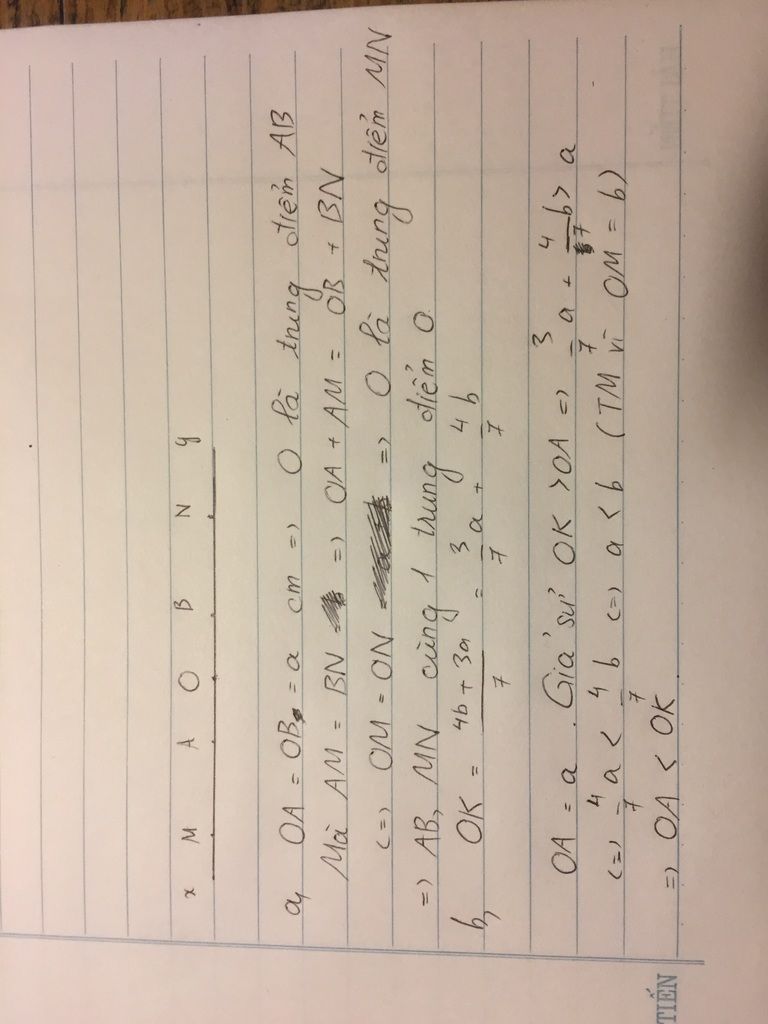 x M A O B N y
a, OA = OB = a cm => O là trung điểm AB
Mà AM = BN => OA + AM = OB + BN
<=> OM = ON => O là trung điểm MN
=> AB, MN cùng 1 trung điểm O
b, OK = (4b + 3a)/7 = 3/7 a + 4/7 b
OA = a . Giả sử OK > OA => 3/7 a + 4/7 b > a
<=> 4/7 a < 4/7 b <=> a < b (TM vì OM = b)
=> OA < OK
TIẾN